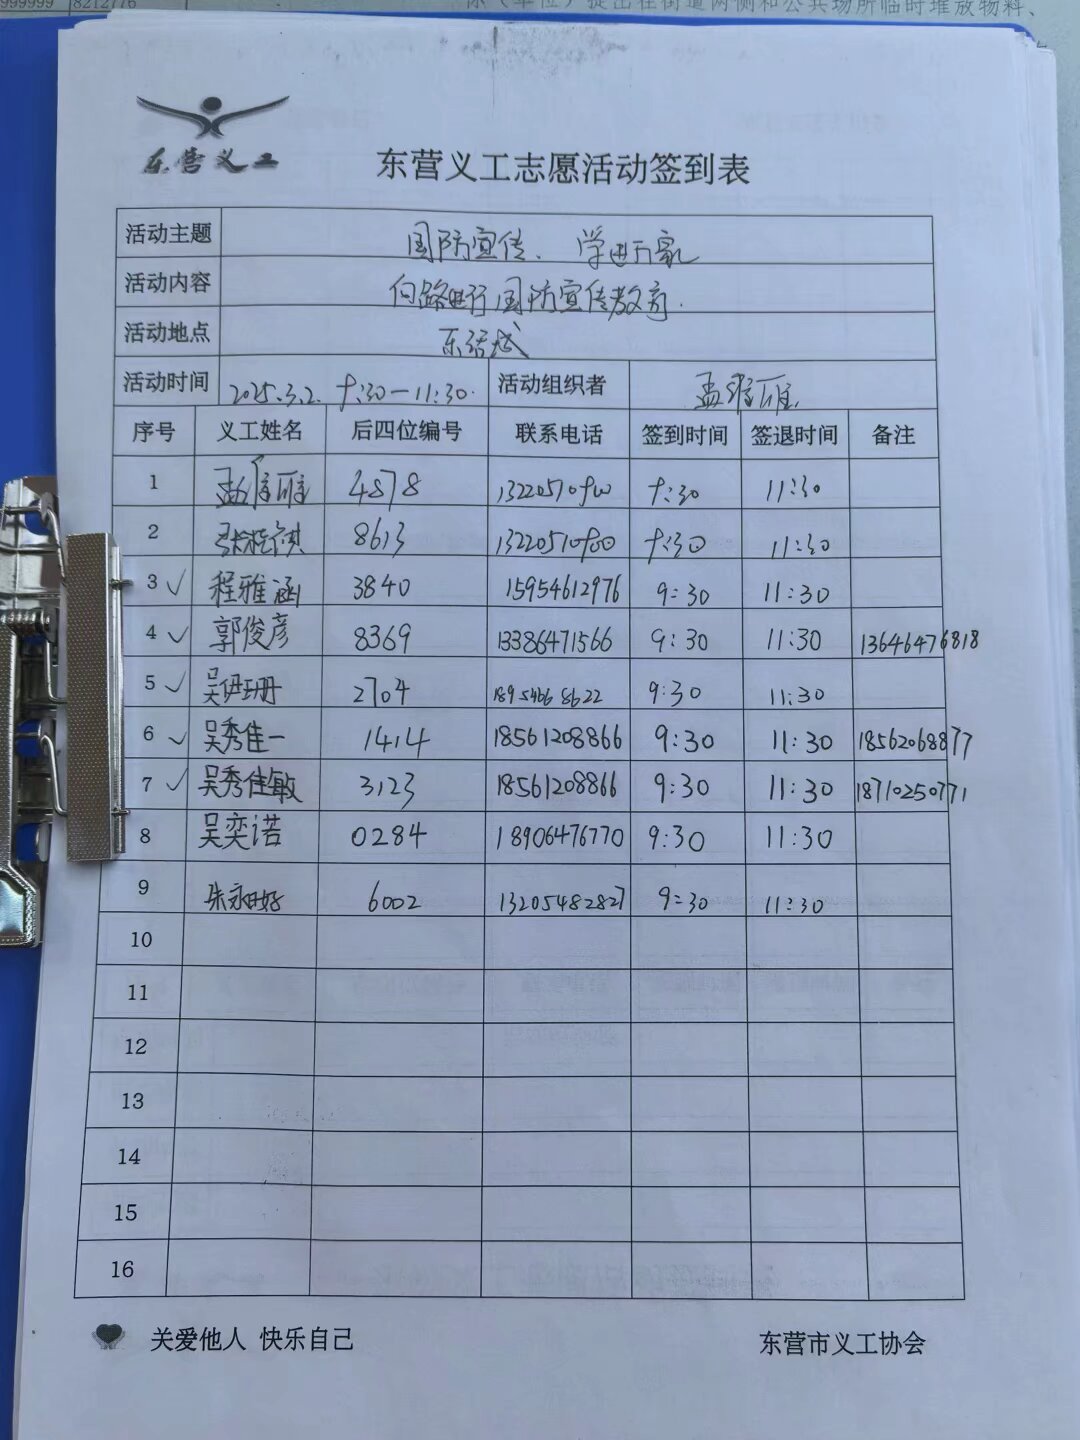 999999 8212776
东（单位）提出在街道两侧和公共场所临时堆放物料、
东营义工
东营义工志愿活动签到表
活动主题 国防宣传、学进万家
活动内容 向路进行国防宣传教育.
活动地点
活动时间 2025.3.2. 9:30—11:30. 活动组织者 孟雅
序号 义工姓名 后四位编号 联系电话 签到时间 签退时间 备注
1 孟 4878 9:30 11:30
2 张 8613 9:30 11:30
3 程雅涵 3840 15954612976 9:30 11:30
4 郭俊彦 8369 13386471566 9:30 11:30 13646476818
5 吴伊珊 2704 18954668622 9:30 11:30
6 吴秀佳一 1414 18561208866 9:30 11:30 18562068877
7 吴秀佳敏 3123 18561208866 9:30 11:30 18710250771
8 吴奕诺 0284 18906476770 9:30 11:30
9 朱 6002 13205482827 9:30 11:30
10
11
12
13
14
15
16
关爱他人 快乐自己 东营市义工协会